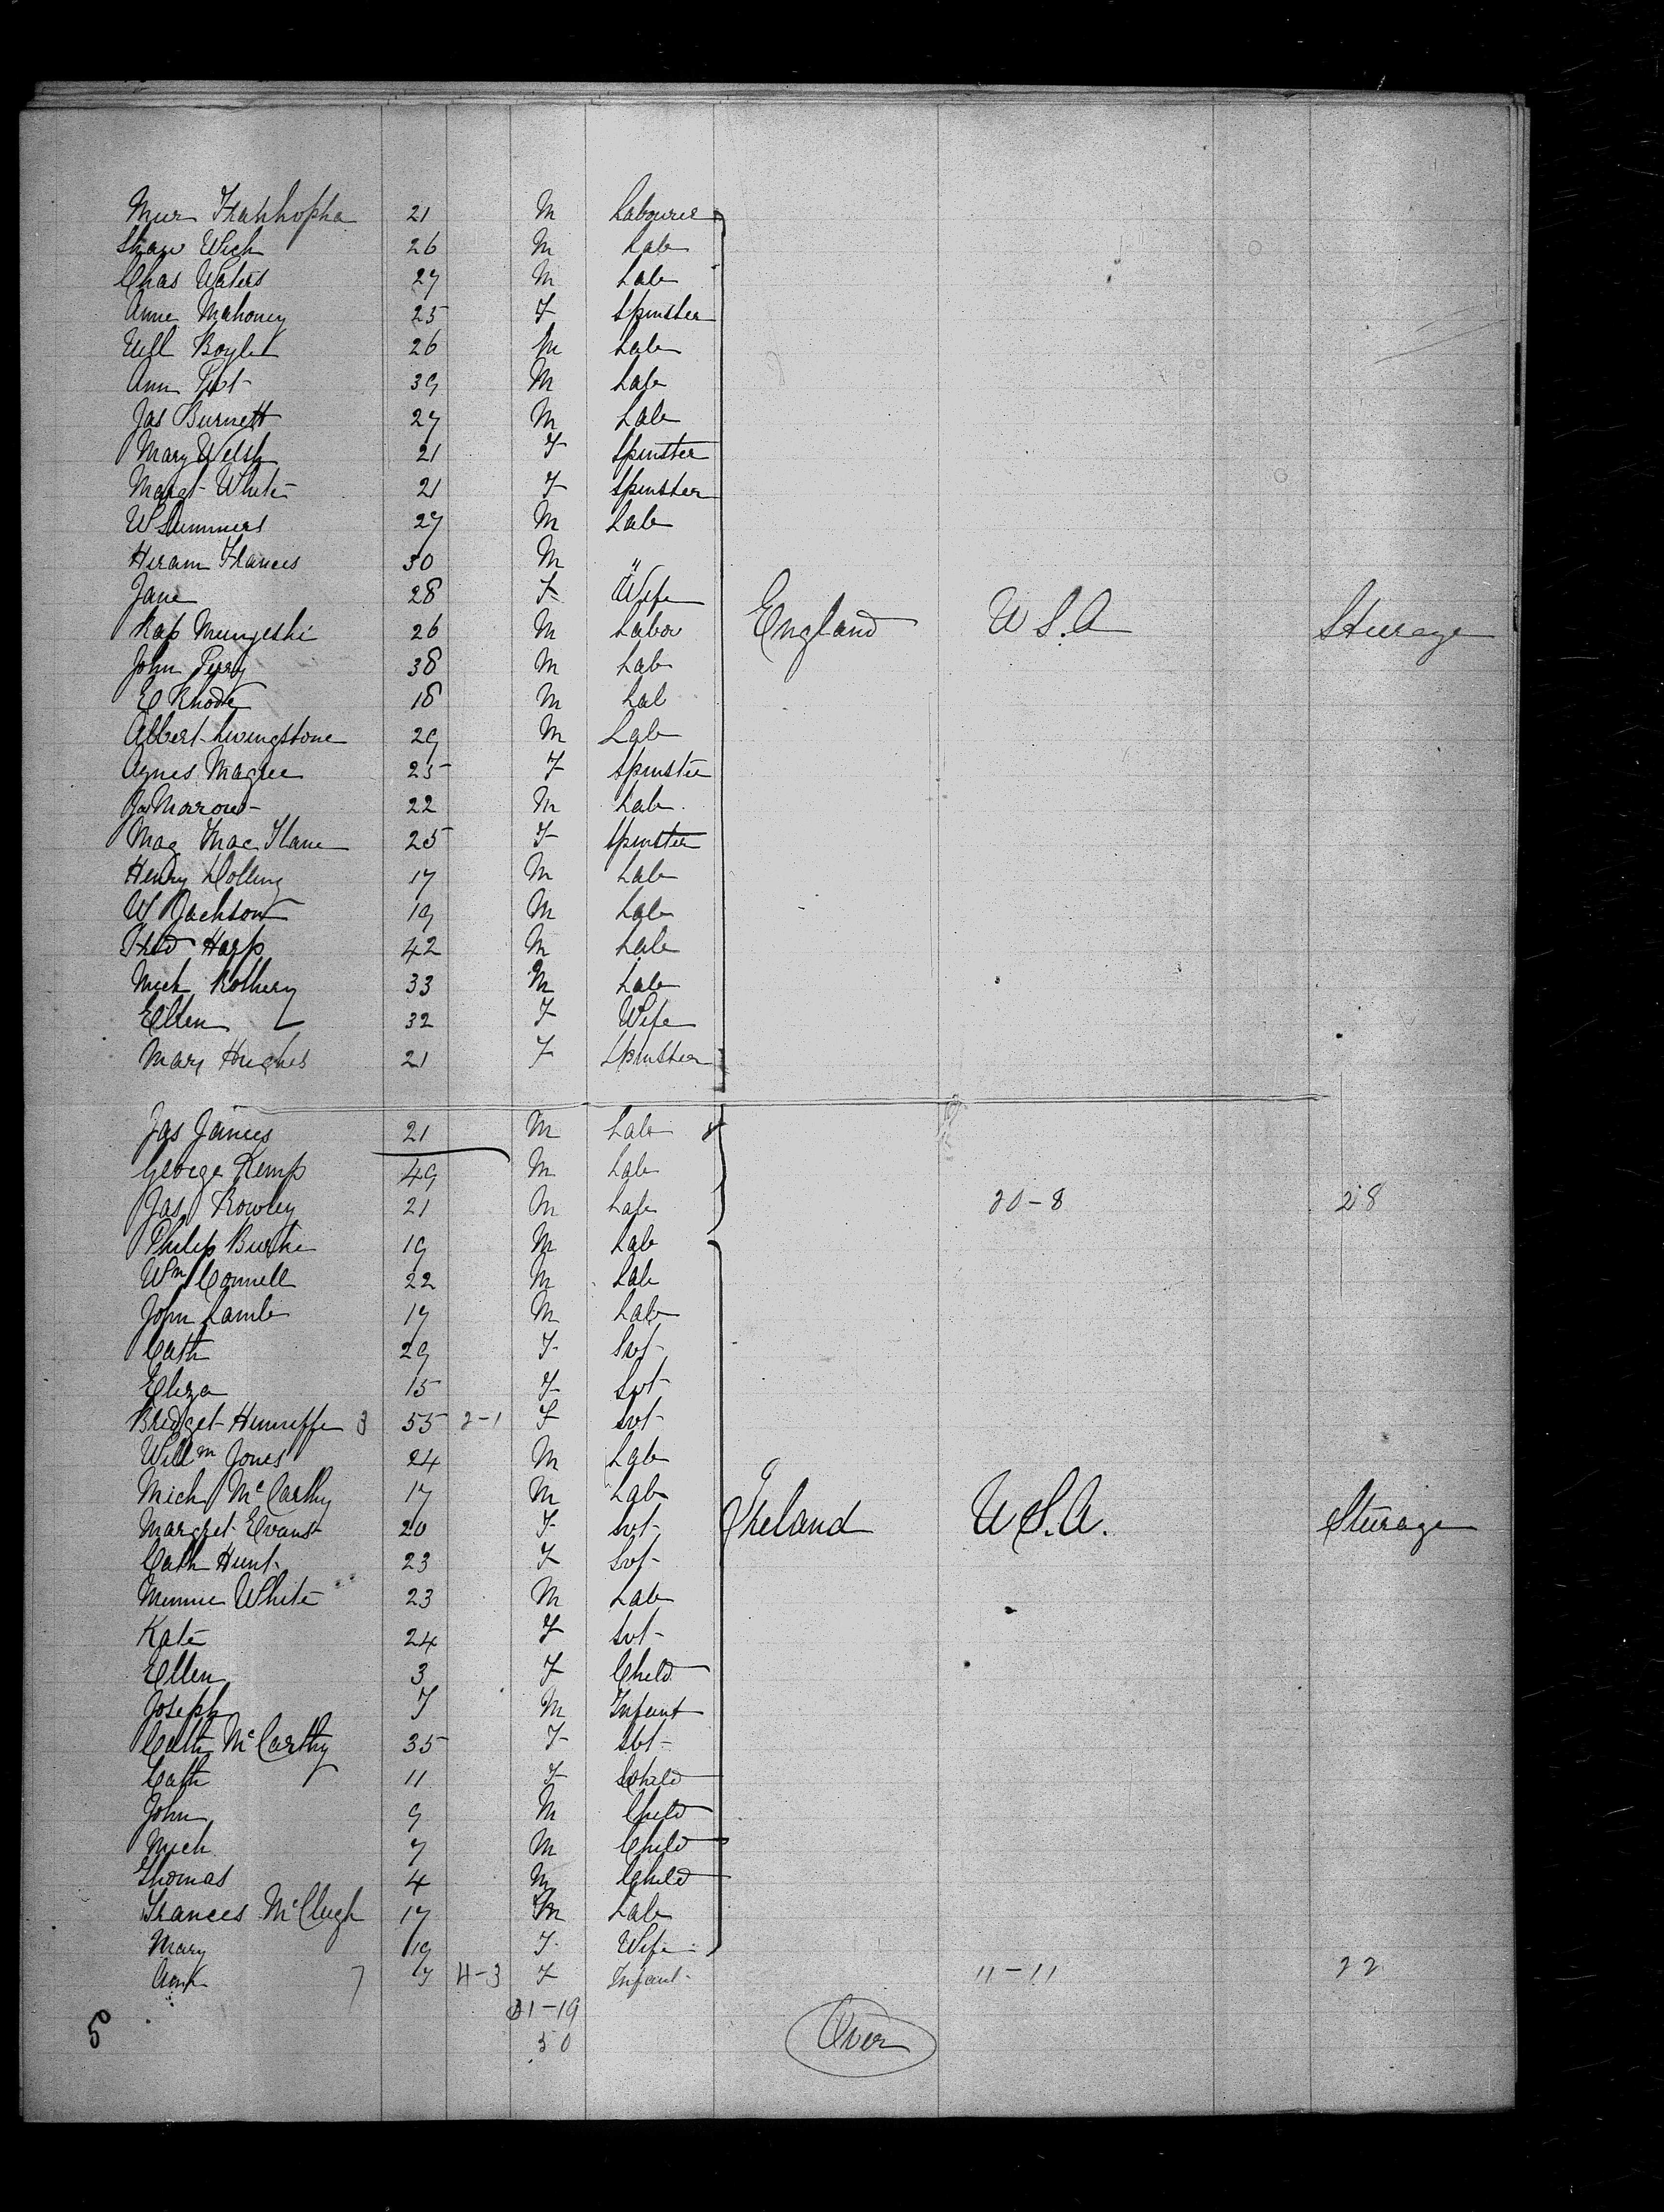 21 M Labourer
Shaw Wick 26 M Lab
Chas Waters 27 M Lab
Anne Mahoney 25 F Spinster
Will Boylet 26 M Lab
Ann 39 M Lab
Jas Burnett 27 M Lab
Mary Welsh 21 F Spinster
Margt White 21 F Spinster
W Summers 27 M Lab
Hiram Frances 30 M "
Jane 28 F Wife
26 M Labor England U S.A Steerage
John Perry 38 M Lab
E Rhode 18 M Lab
Albert Livingstone 29 M Lab
Agnes Magee 25 F Spinster
22 M Lab
Mag Mac Ilane 25 F Spinster
Henry Dolling 17 M Lab
W Jackson 19 M Lab
Fred Harp 42 M Lab
Mich Rothery 33 M Lab
Ellen 32 F Wife
Mary Hughes 21 F Spinster
Jas James 21 M Lab
George Kemp 49 M Lab
Jas Rowley 21 M Lab 20-8 28
Philip Burke 19 M Lab
Wm Connell 22 M Lab
John Lamb 17 M Lab
Cath 29 F Svt
Eliza 15 F Svt
Bridget 3 55 2-1 F Svt
Willm Jones 24 M Lab
Mich McCarthy 17 M Lab
Margret Evans 20 F Svt Ireland U S.A. Steerage
Cath Hunt 23 F Svt
Minnie White 23 M Lab
Kate 24 F Svt
Ellen 3 F Child
Joseph M Infant
Cath McCarthy 35 F Svt
Cath 11 F Child
John 9 M Child
Mich 7 M Child
Thomas 4 M Child
Frances McClugh 17 M Lab
Mary 19 F Wife
7 4-3 F Infant 11-11 22
31-19
50 50
Over